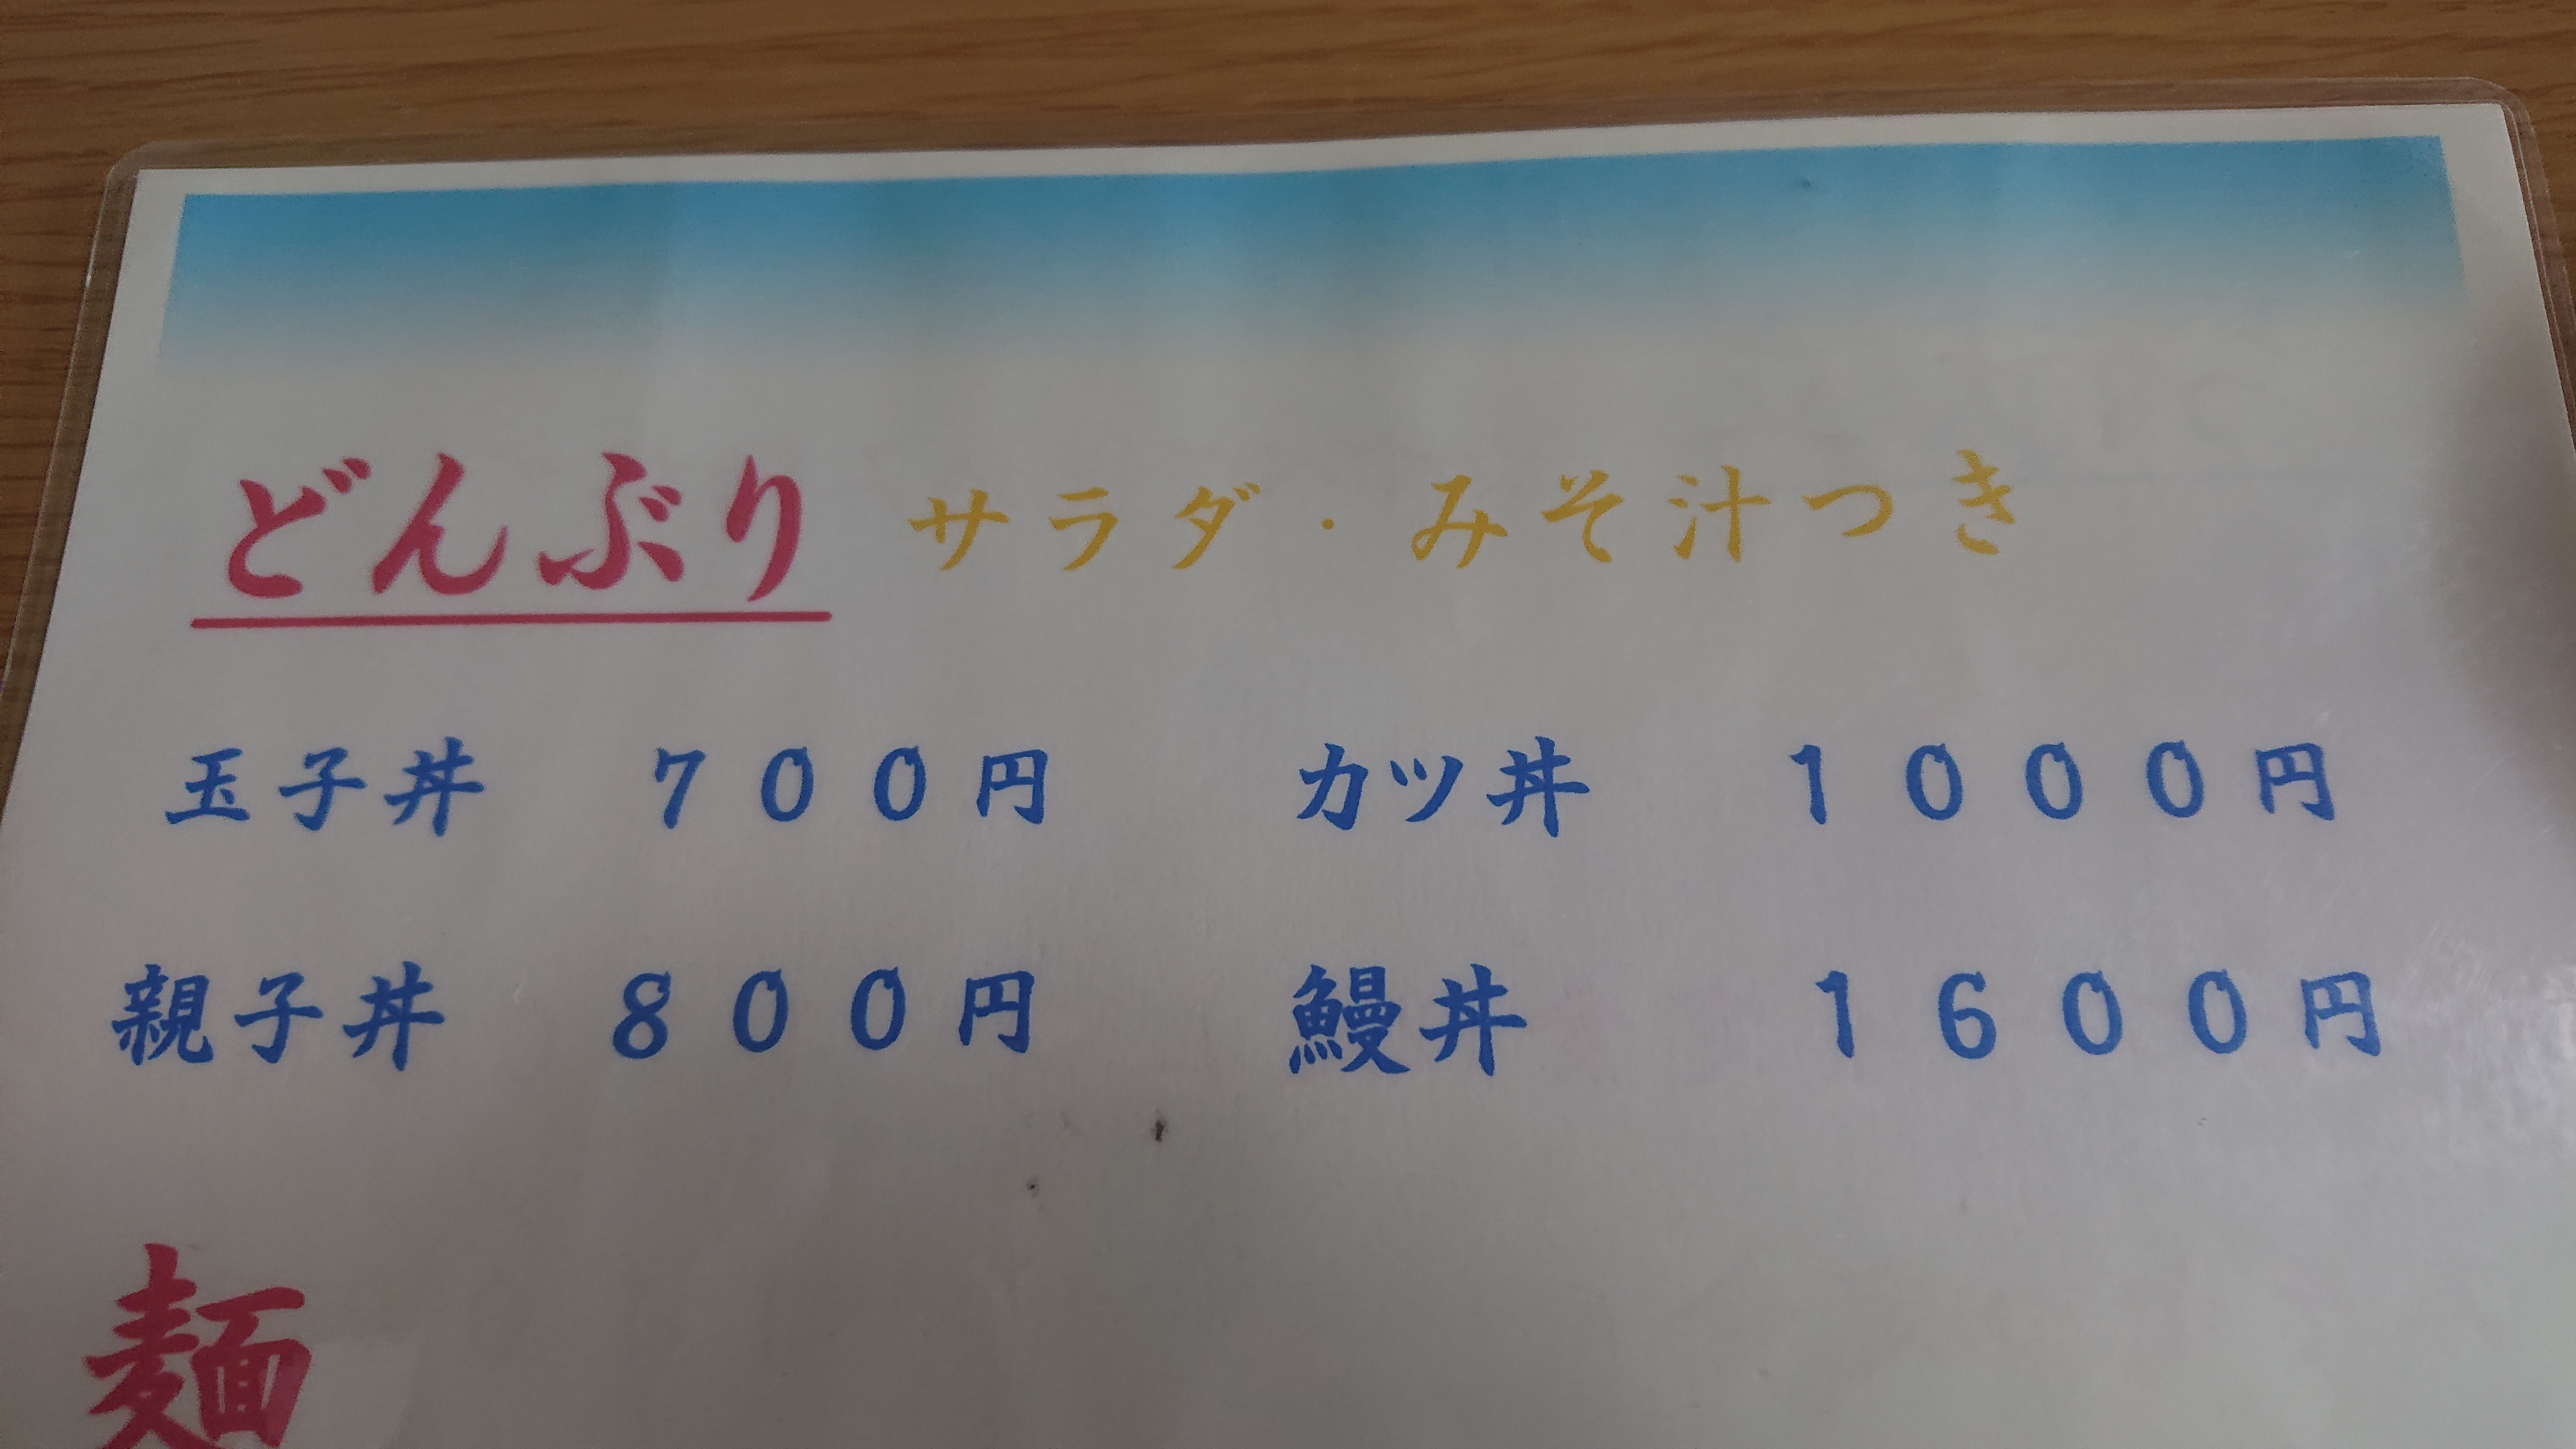 どんぶり サラダ・みそ汁つき
玉子丼 ７００円 カツ丼 １０００円
親子丼 ８００円 鰻丼 １６００円
麺